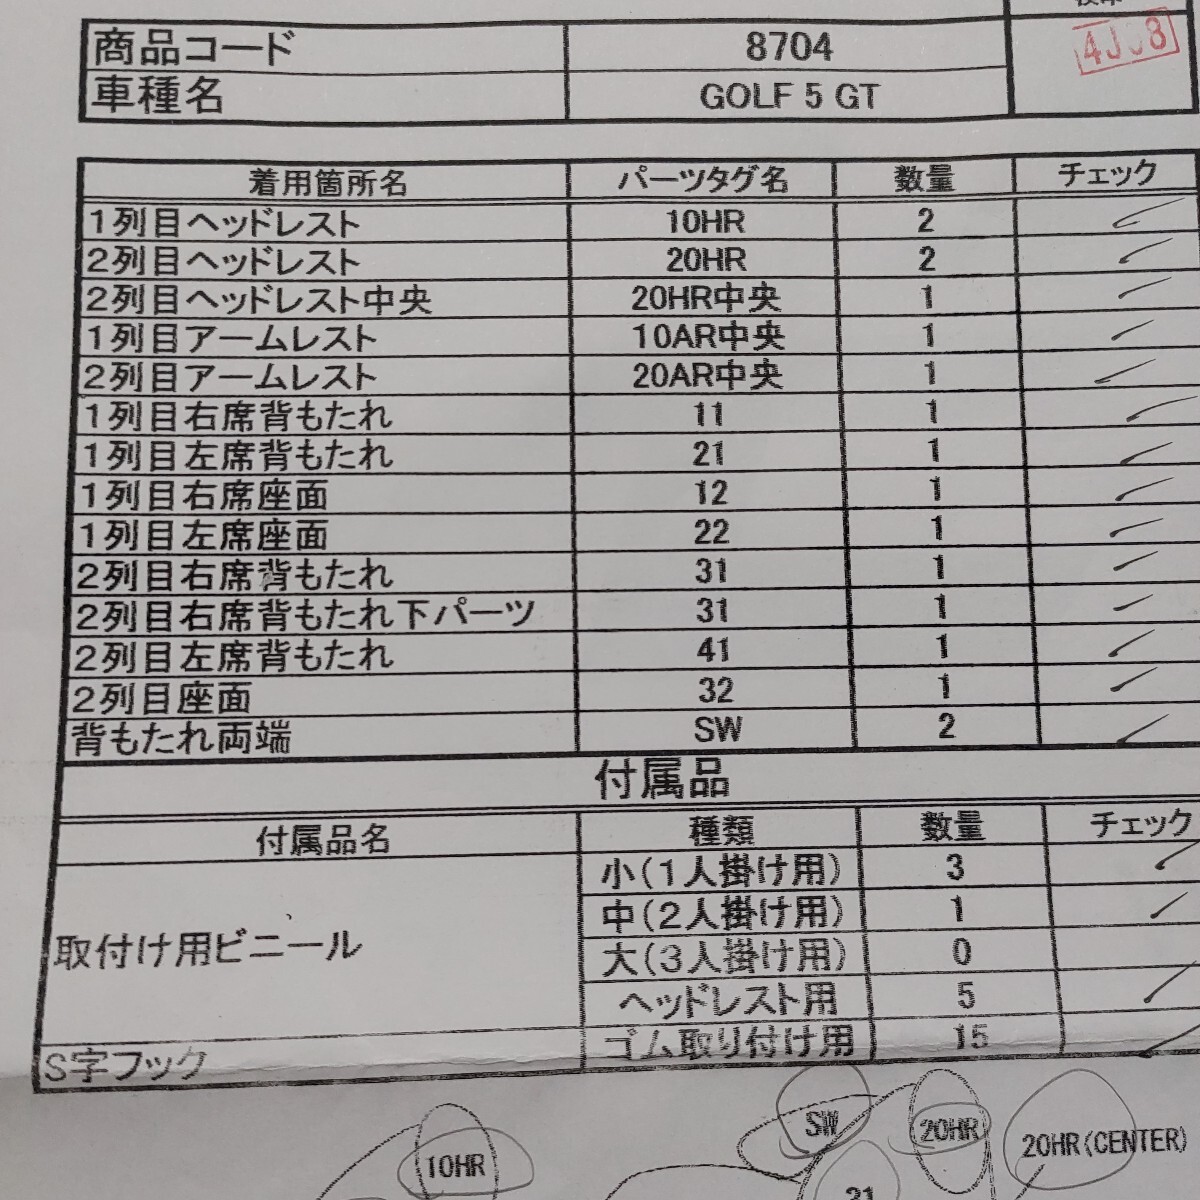 商品コード 8704
車種名 GOLF 5 GT
着用箇所名 パーツタグ名 数量 チェック
1列目ヘッドレスト 10HR 2
2列目ヘッドレスト 20HR 2
2列目ヘッドレスト中央 20HR中央 1
1列目アームレスト 10AR中央 1
2列目アームレスト 20AR中央 1
1列目右席背もたれ 11 1
1列目左席背もたれ 21 1
1列目右席座面 12 1
1列目左席座面 22 1
2列目右席背もたれ 31 1
2列目右席背もたれ下パーツ 31 1
2列目左席背もたれ 41 1
2列目座面 32 1
背もたれ両端 SW 2
付属品
付属品名 種類 数量 チェック
取付け用ビニール
小(1人掛け用) 3
中(2人掛け用) 1
大(3人掛け用) 0
ヘッドレスト用 5
S字フック ゴム取り付け用 15
10HR
SW
20HR
20HR(CENTER)
21